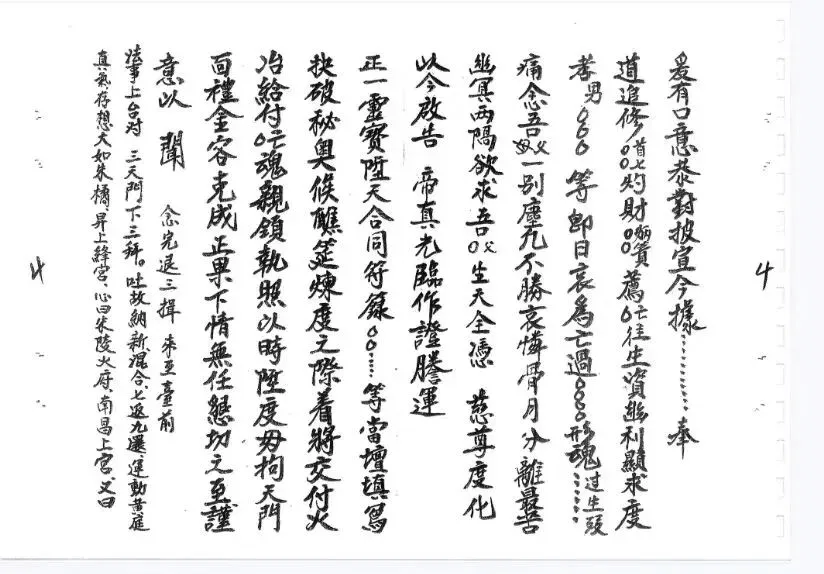 4
爰有口意恭對披宣今據…………奉
道追修首七○○灼財○○薦亡往生資幽利顯求度
孝男○○○等即日哀為亡過○○○○形魂过生頭……
痛念吾父母一別塵凡不勝哀憐骨月分離最苦
幽冥兩隔欲求吾○父生天全憑 慈尊度化
以今啟告 帝真光臨作證騰運
正一靈寶陞天合同符籙○○……等當壇填寫
抉破秘奧候醮筵煉度之際着將交付火
冶給付亡魂親領執照以時陞度毋拘天門
面禮金容克成正果下情無任懇切之至謹
意以 聞 念完退三揖 來至臺前
法事上台对 三天門下三拜。吐故納新混合、七返九還運動黃庭
真炁存想大如朱橘、昇上絳宮、心曰朱陵火府、南昌上宮、又曰
4